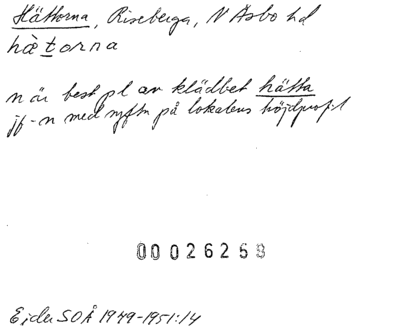 Hättorna, Riseberga, N Åsbo hd
hὰtorna
n är best pl av klädbet hätta
jf-n med syftn på lokalens höjdprofil
00026258
Ejder SOÅ 1949-1951:14